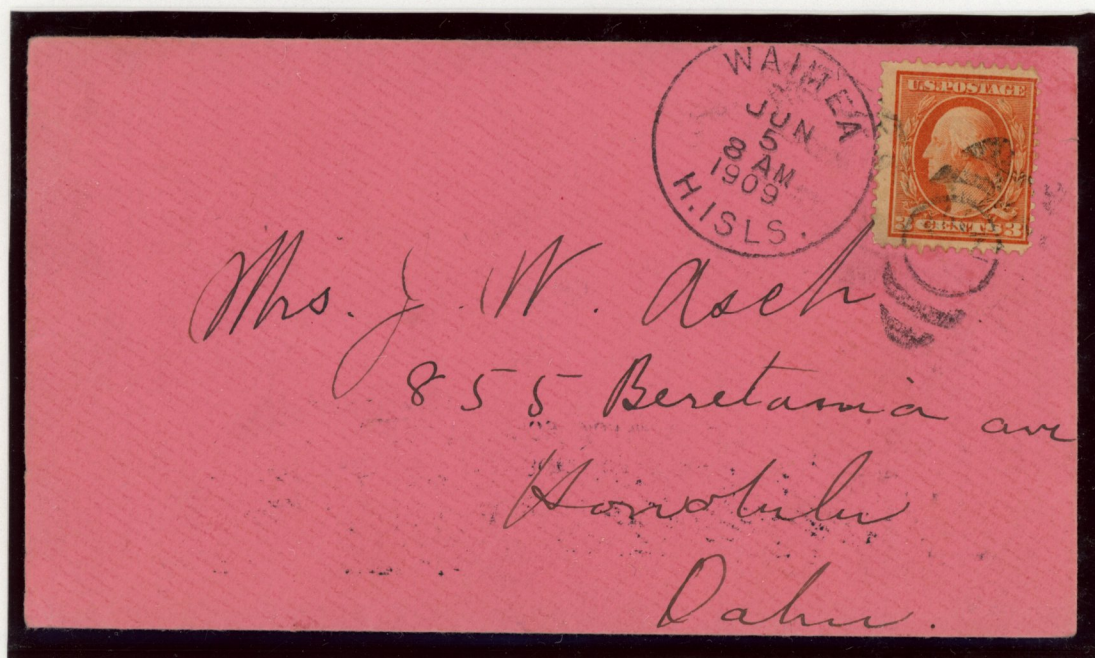 WAIMEA
JUN
5
8 AM
1909
H. ISLS.
U.S. POSTAGE
3 CENTS 3
Mrs. J. W. Asch
855 Beretania ave
Honolulu
Oahu.